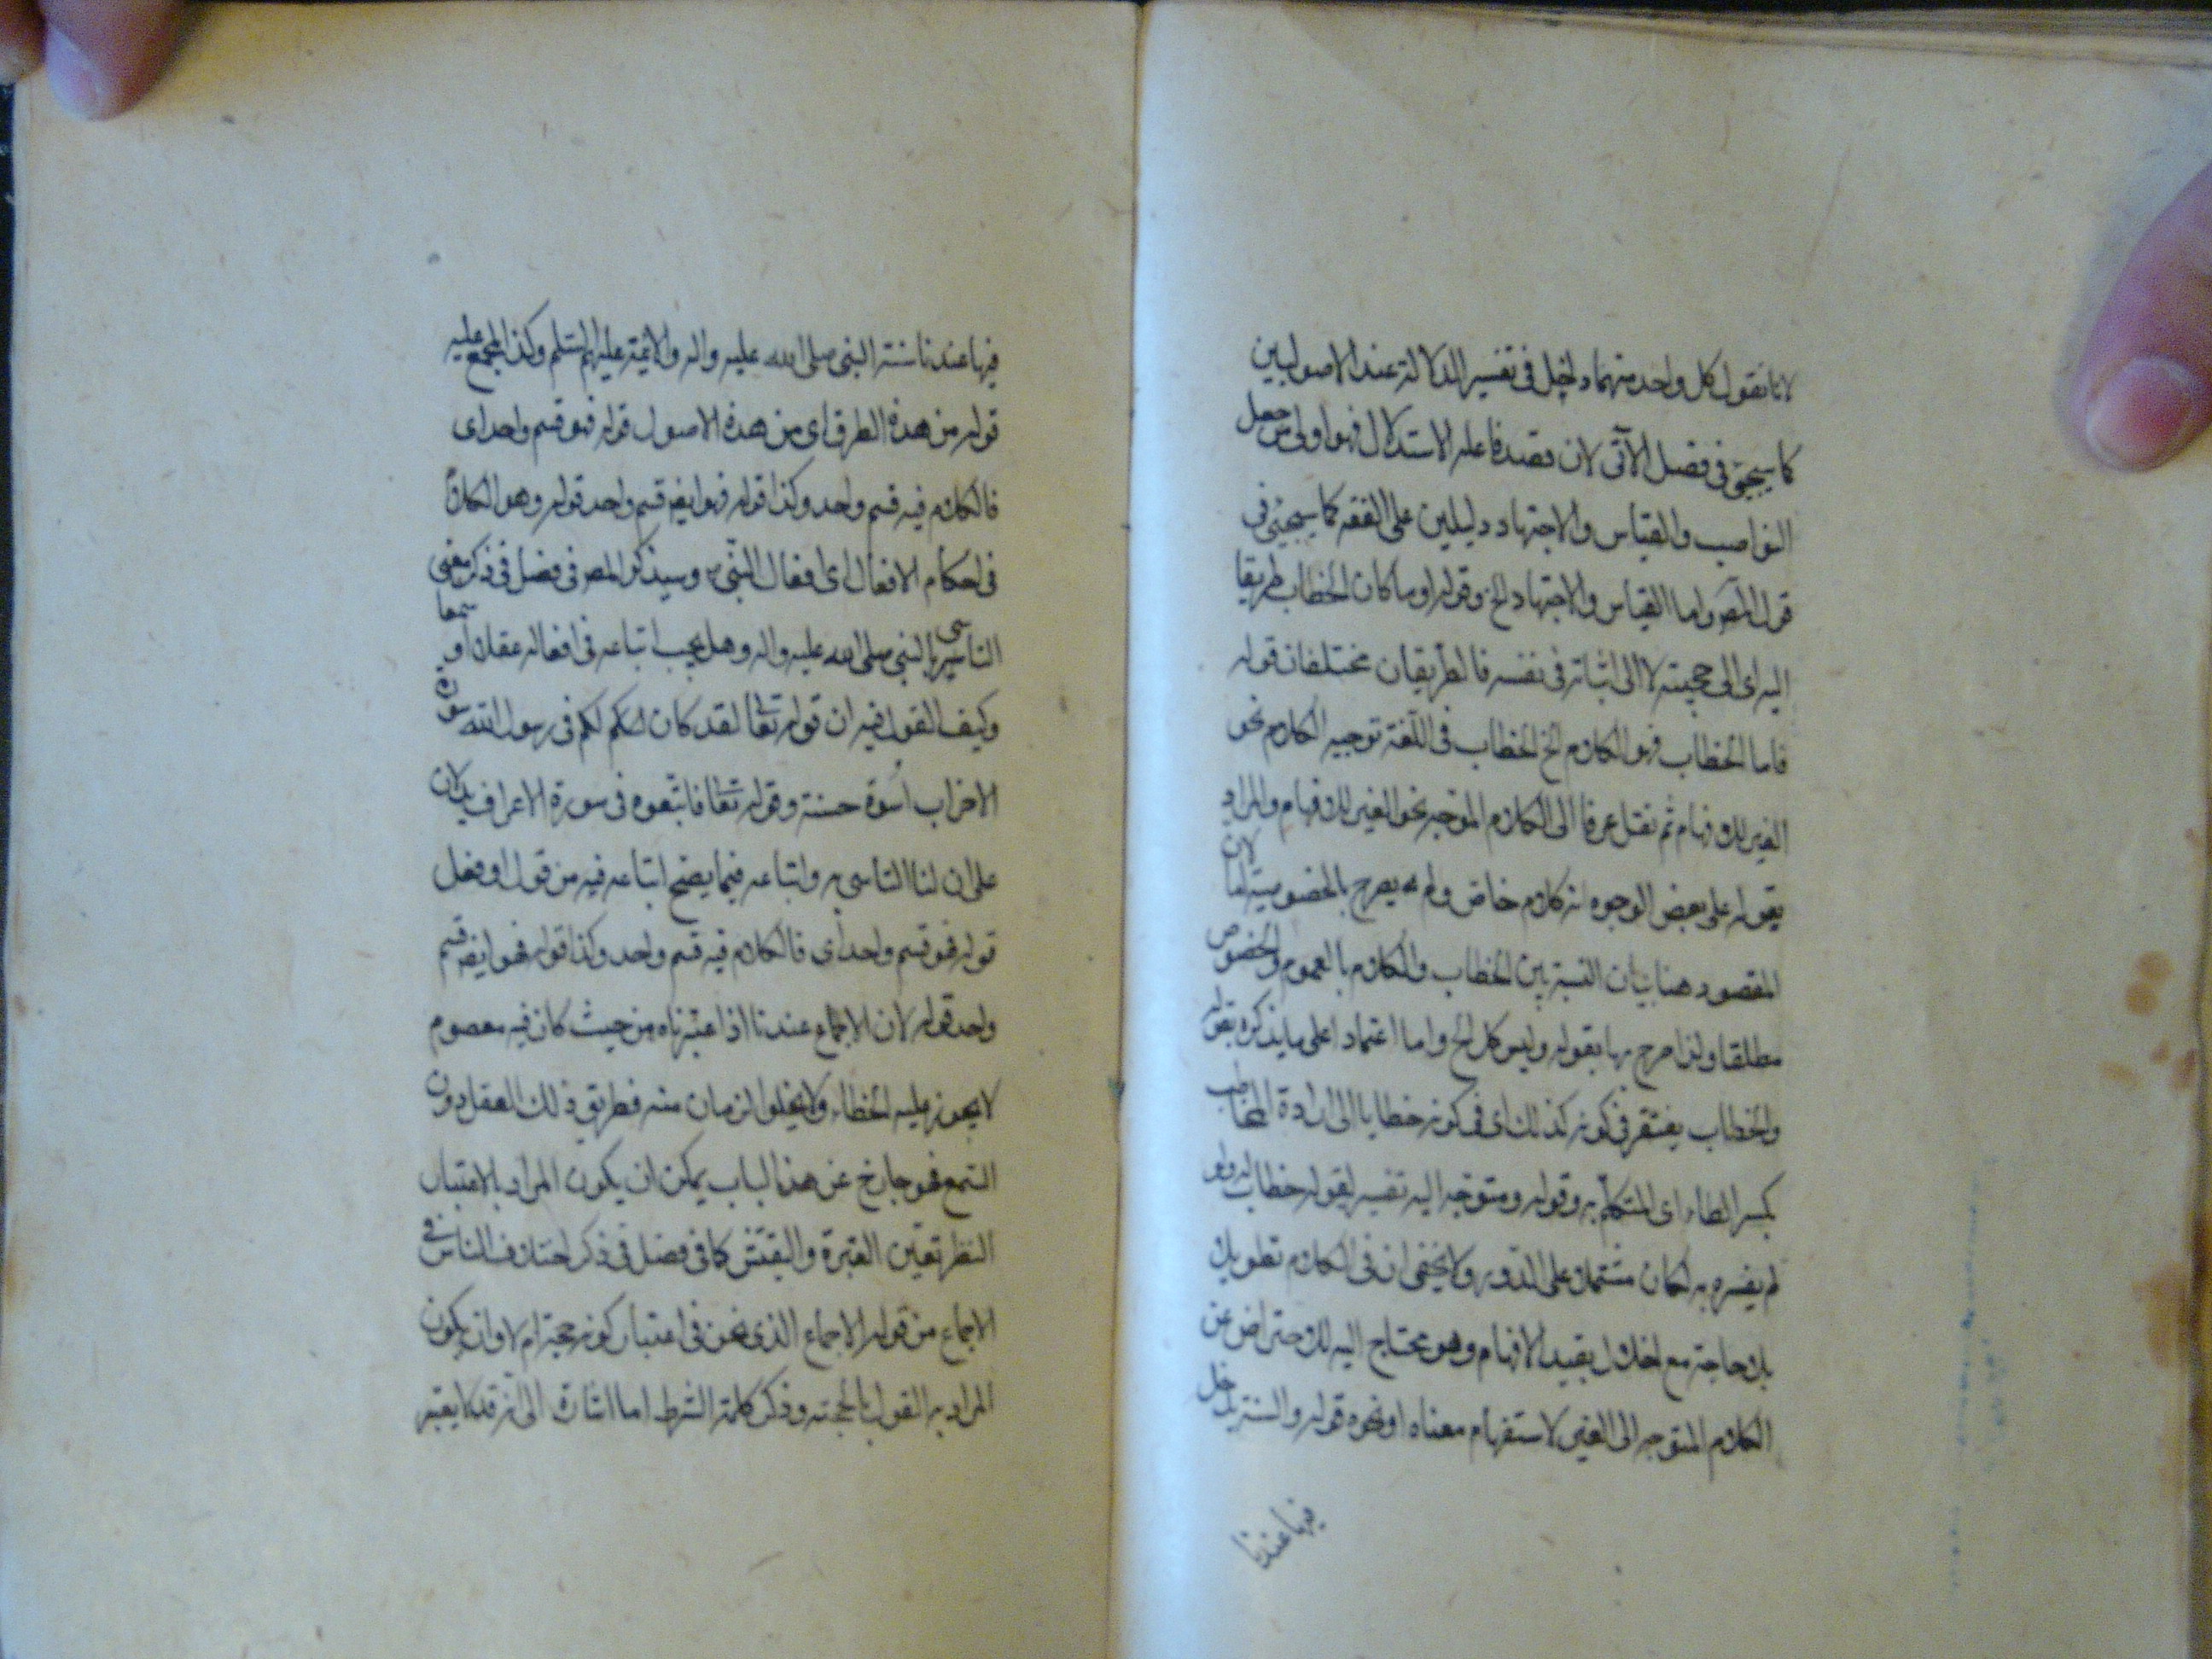 لانا نقول كل واحد منهما داخل فى تفسير الدلالة عند الاصوليين
كما سيجئ فى فصل الآتى لان قصد فاعله الاستدلال فهو اولى من جعل
النواصب والقياس والاجتهاد دليلين على الفقه كما سيجيئ فى
قول المصر واما القياس والاجتهاد الخ وقوله او ما كان الخطاب طريقا
اليه اى الى حجيته لا الى اثباته فى نفسه فالطريقان مختلفان قوله
فاما الخطاب فهو الكلام الخ الخطاب فى اللغة توجيه الكلام نحو
الغير للافهام ثم نقل عرفا الى الكلام الموجه نحو الغير للافهام والمراد
بقوله على بعض الوجوه انه كلام خاص ولم يصرح بالخصوصية اما لان
المقصود هنا بيان النسبة بين الخطاب والكلام بالعموم والخصوص
مطلقا ولذا صرح بها بقوله وليس كل الخ واما اعتمادا على ما يذكره بقوله
والخطاب يفتقر فى كونه كذلك اى فى كونه خطابا الى ارادة المخاطب
بكسر الطاء اى المتكلم به وقوله ومتوجه اليه تفسير لقوله خطاب له ولو
لم يفسره به لكان مشتملا على الدور ولا يخفى ان فى الكلام تطويل
بلا حاجة مع اخلال بقيد الافهام وهو محتاج اليه للاحتراض عن
الكلام المتوجه الى الغير لاستفهام معناه او نحوه قوله والسنة يدخل
فيها عندنا
فيها عندنا سنة النبى صلى الله عليه واله والائمة عليهم السلم وكذا المجمع عليه
قوله من هذه الطرق اى من هذه الاصول قوله فهو قسم واحد اى
فالكلام فيه قسم واحد وكذا قوله فهو ايضر قسم واحد قوله وهو الكلام
فى احكام الافعال اى افعال النبى وسيذكر المصر فى فصل فى ذكر معنى
التاسى بالنبى صلى الله عليه واله وهل يجب اتباعه فى افعاله عقلا او سمعا
وكيف القول فيه ان قوله تعا لقد كان لكم فى رسول الله سورة
الاحزاب اسوة حسنة وقوله تعا فاتبعوه فى سورة الاعراف يدلان
على ان لنا التاسى به واتباعه فيما يصح اتباعه فيه من قول او فعل
قوله فهو قسم واحد اى فالكلام فيه قسم واحد وكذا قوله فهو ايضر قسم
واحد قوله لان الاجماع عندنا اذا اعتبرناه من حيث كان فيه معصوم
لا يجوز عليه الخطاء ولا يخلو الزمان منه فطريق ذلك العقل دون
السمع فهو خارج عن هذا الباب يمكن ان يكون المراد بالاعتبار
النظر بتعين العترة والتفتش كما فى فصل فى ذكر اختلاف الناس فى
الاجماع من قوله الاجماع الذى نحن فى اعتبار كونه حجة ام لا وان يكون
المراد به القول بالحجته وذكر كلمة الشرط اما اشارة الى انه قد لا يعتبر